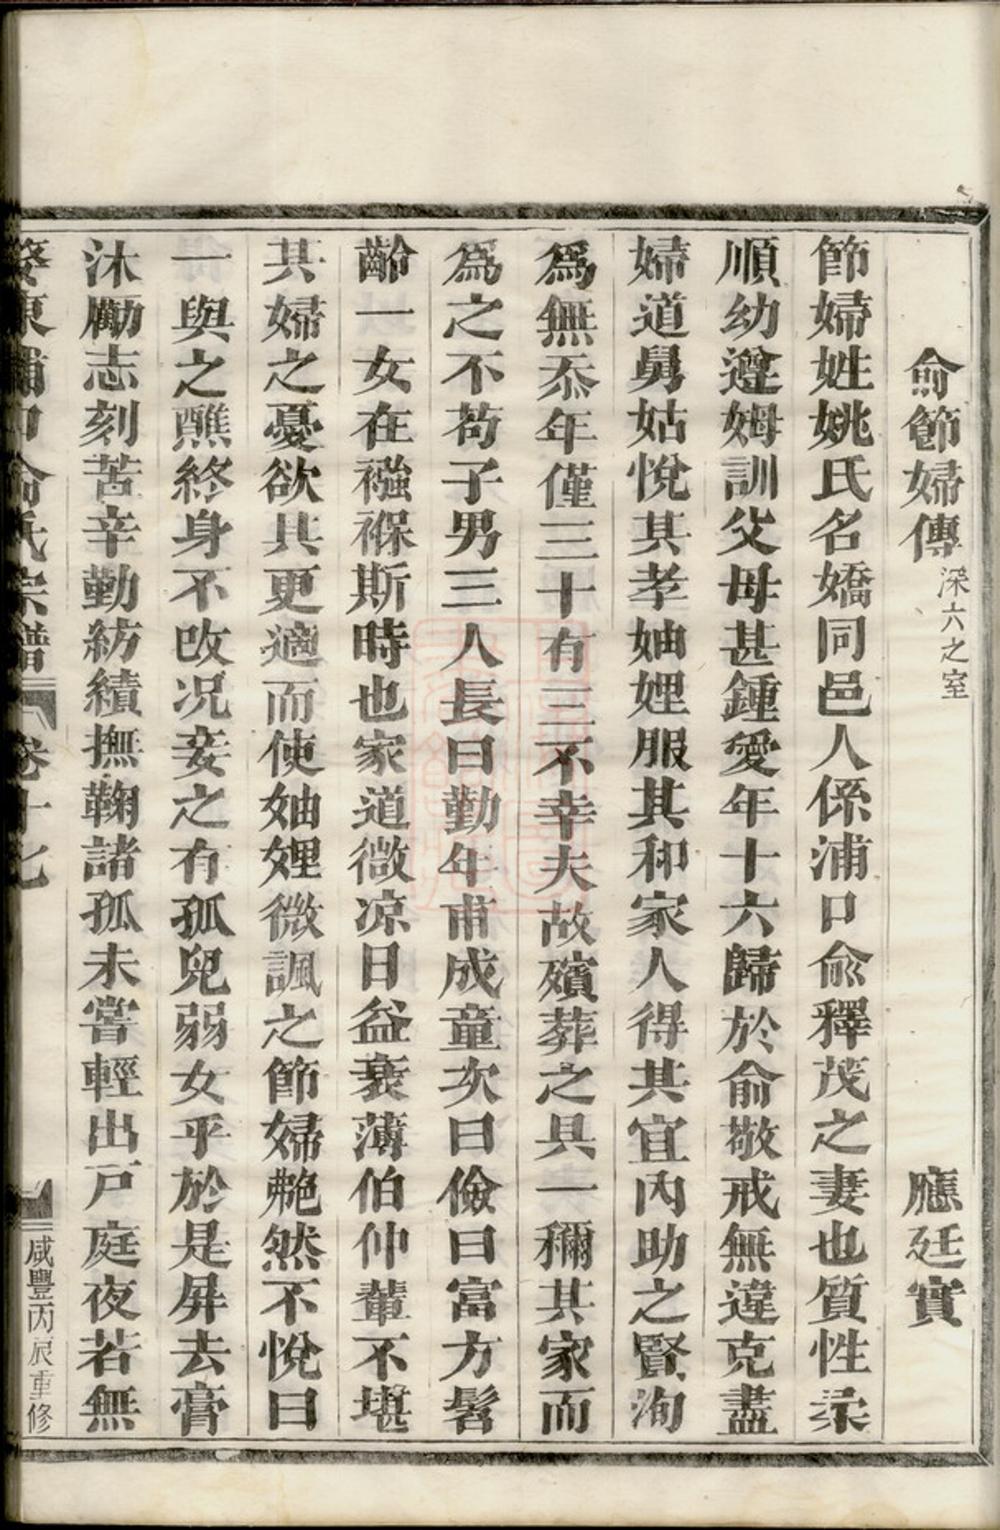 俞節婦傳深六之室 應廷實
節婦姓姚氏名嬌同邑人係浦口俞釋茂之妻也質性柔
順幼遵姆訓父母甚鍾愛年十六歸於俞敬戒無違克盡
婦道舅姑悅其孝妯娌服其和家人得其宜內助之賢洵
爲無忝年僅三十有三不幸夫故殯葬之具一稱其家而
爲之不苟子男三人長曰勤年甫成童次曰儉曰富方髫
齡一女在襁褓斯時也家道微凉日益衰薄伯仲輩不堪
其婦之憂欲其更適而使妯娌微諷之節婦艴然不悅曰
一與之醮終身不改况妾之有孤兒弱女乎於是屏去膏
沐勵志刻苦辛勤紡績撫鞠諸孤未嘗輕出戸庭夜若無
婺東浦口俞氏宗譜 卷十七 咸豐丙辰重修